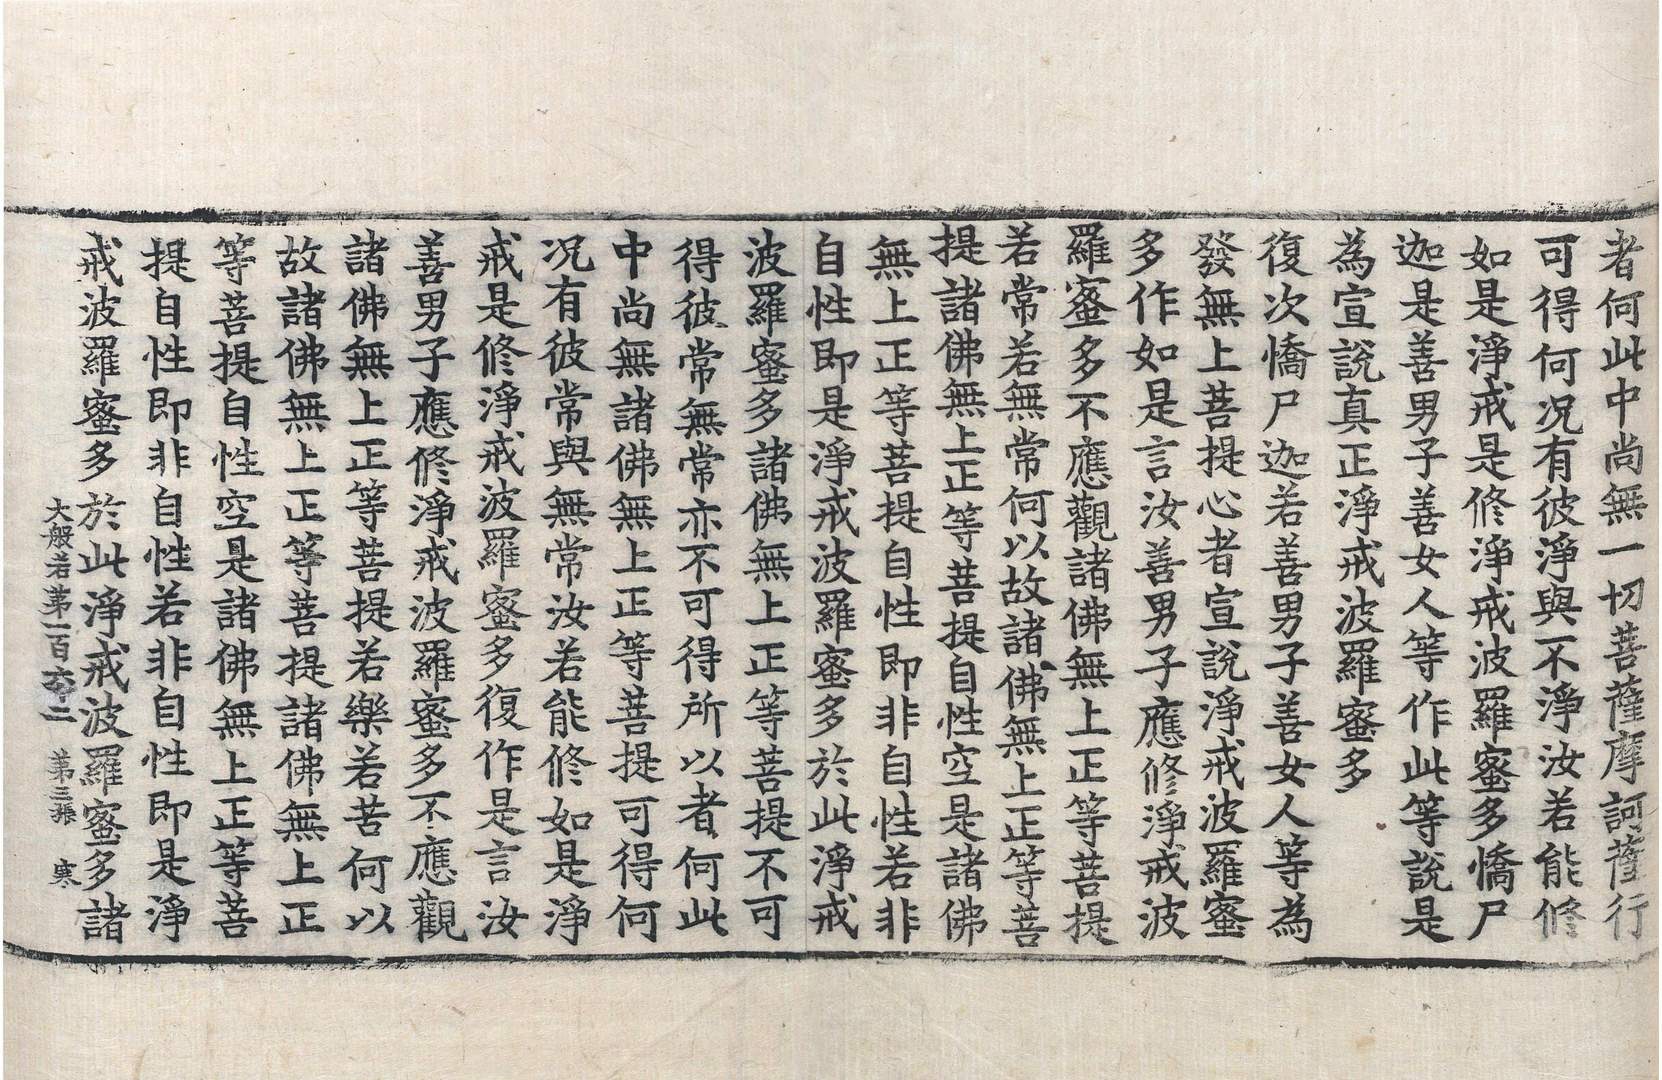 者何此中尚無一切菩薩摩訶薩行
可得何况有彼淨與不淨汝若能修
如是淨戒是修淨戒波羅蜜多憍尸
迦是善男子善女人等作此等說是
為宣說真正淨戒波羅蜜多
復次憍尸迦若善男子善女人等為
發無上菩提心者宣說淨戒波羅蜜
多作如是言汝善男子應修淨戒波
羅蜜多不應觀諸佛無上正等菩提
若常若無常何以故諸佛無上正等菩
提諸佛無上正等菩提自性空是諸佛
無上正等菩提自性即非自性若非
自性即是淨戒波羅蜜多於此淨戒
波羅蜜多諸佛無上正等菩提不可
得彼常無常亦不可得所以者何此
中尚無諸佛無上正等菩提可得何
况有彼常與無常汝若能修如是淨
戒是修淨戒波羅蜜多復作是言汝
善男子應修淨戒波羅蜜多不應觀
諸佛無上正等菩提若樂若苦何以
故諸佛無上正等菩提諸佛無上正
等菩提自性空是諸佛無上正等菩
提自性即非自性若非自性即是淨
戒波羅蜜多於此淨戒波羅蜜多諸
大般若第一百六十二 第三張 寒